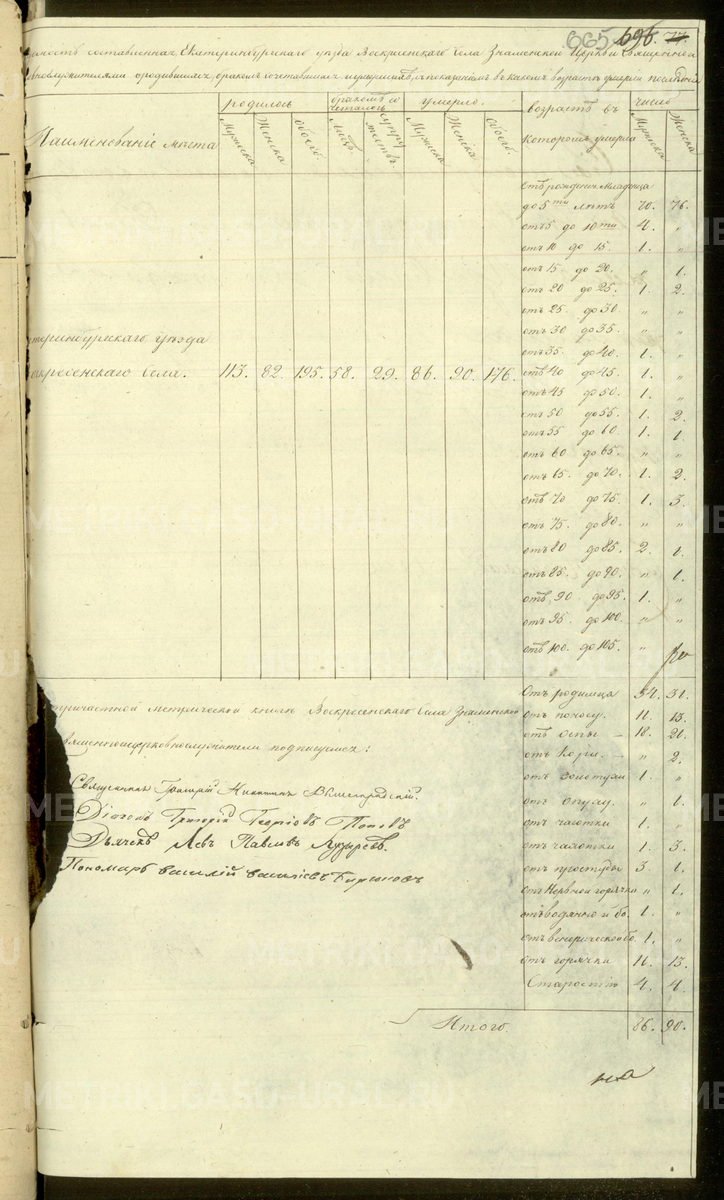 665 696. 77
составленная Екатеринбургскаго уѣзда Воскресенскаго села Знаменской Церкви Священно
о родившихся, бракомъ сочетавшихся и умершихъ, съ показаніемъ въ какомъ возрастѣ умерли послѣдніе
родилось бракомъ сочеталось умерло. возрастъ въ число
Наименованіе мѣста Мужеска Женска обоего. Лицъ Супружествъ. Мужеска Женска обоего. которомъ умерли Мужеска Женска
Отъ рожденія младенца
до 5ти лѣтъ 70. 76.
отъ 5 до 10ти 4. „
отъ 10 до 15. 1. „
отъ 15 до 20. „ 1.
отъ 20 до 25. 1. 2.
отъ 25 до 30 „ „
отъ 30 до 35. „ „
Екатеринбургскаго уѣзда отъ 35 до 40. 1. „
Воскресенскаго села. 113. 82. 195. 58. 29. 86. 90. 176. отъ 40 до 45. 1. „
отъ 45 до 50. 1. „
отъ 50 до 55. 1. 2.
отъ 55 до 60. 1. 1.
отъ 60 до 65. „ „
отъ 65 до 70. 1. 2.
отъ 70 до 75. 1. 3.
отъ 75. до 80. „ „
отъ 80 до 85. 2. 1.
отъ 85. до 90. „ 1.
отъ 90 до 95. 1. „
отъ 95. до 100. „ „
отъ 100. до 105. „
Отъ родимца 34. 31.
метрической книги Воскресенскаго села Знаменской отъ поносу. 11. 13.
священноцерковнослужители подписуемся: отъ оспы 18. 21.
отъ кори. „ 2.
Священникъ Григорій Никитинъ отъ золотухи 1. „
Діаконъ Григорій Георгіевъ Поповъ отъ опуху. „ 1.
Дьячекъ Левъ Павловъ Пузыревъ. отъ чахотки 1. „
Пономарь Василій Васильевъ отъ 1. 3.
отъ простуды 3. 1.
отъ нервной горячки „ 1.
отъ водяной бо. 1. „
отъ венерической бо. 1. „
отъ горячки 16. 13.
Старостію 4. 4.
Итого. 86. 90.
на
METRIKI.GASO-URAL.RU